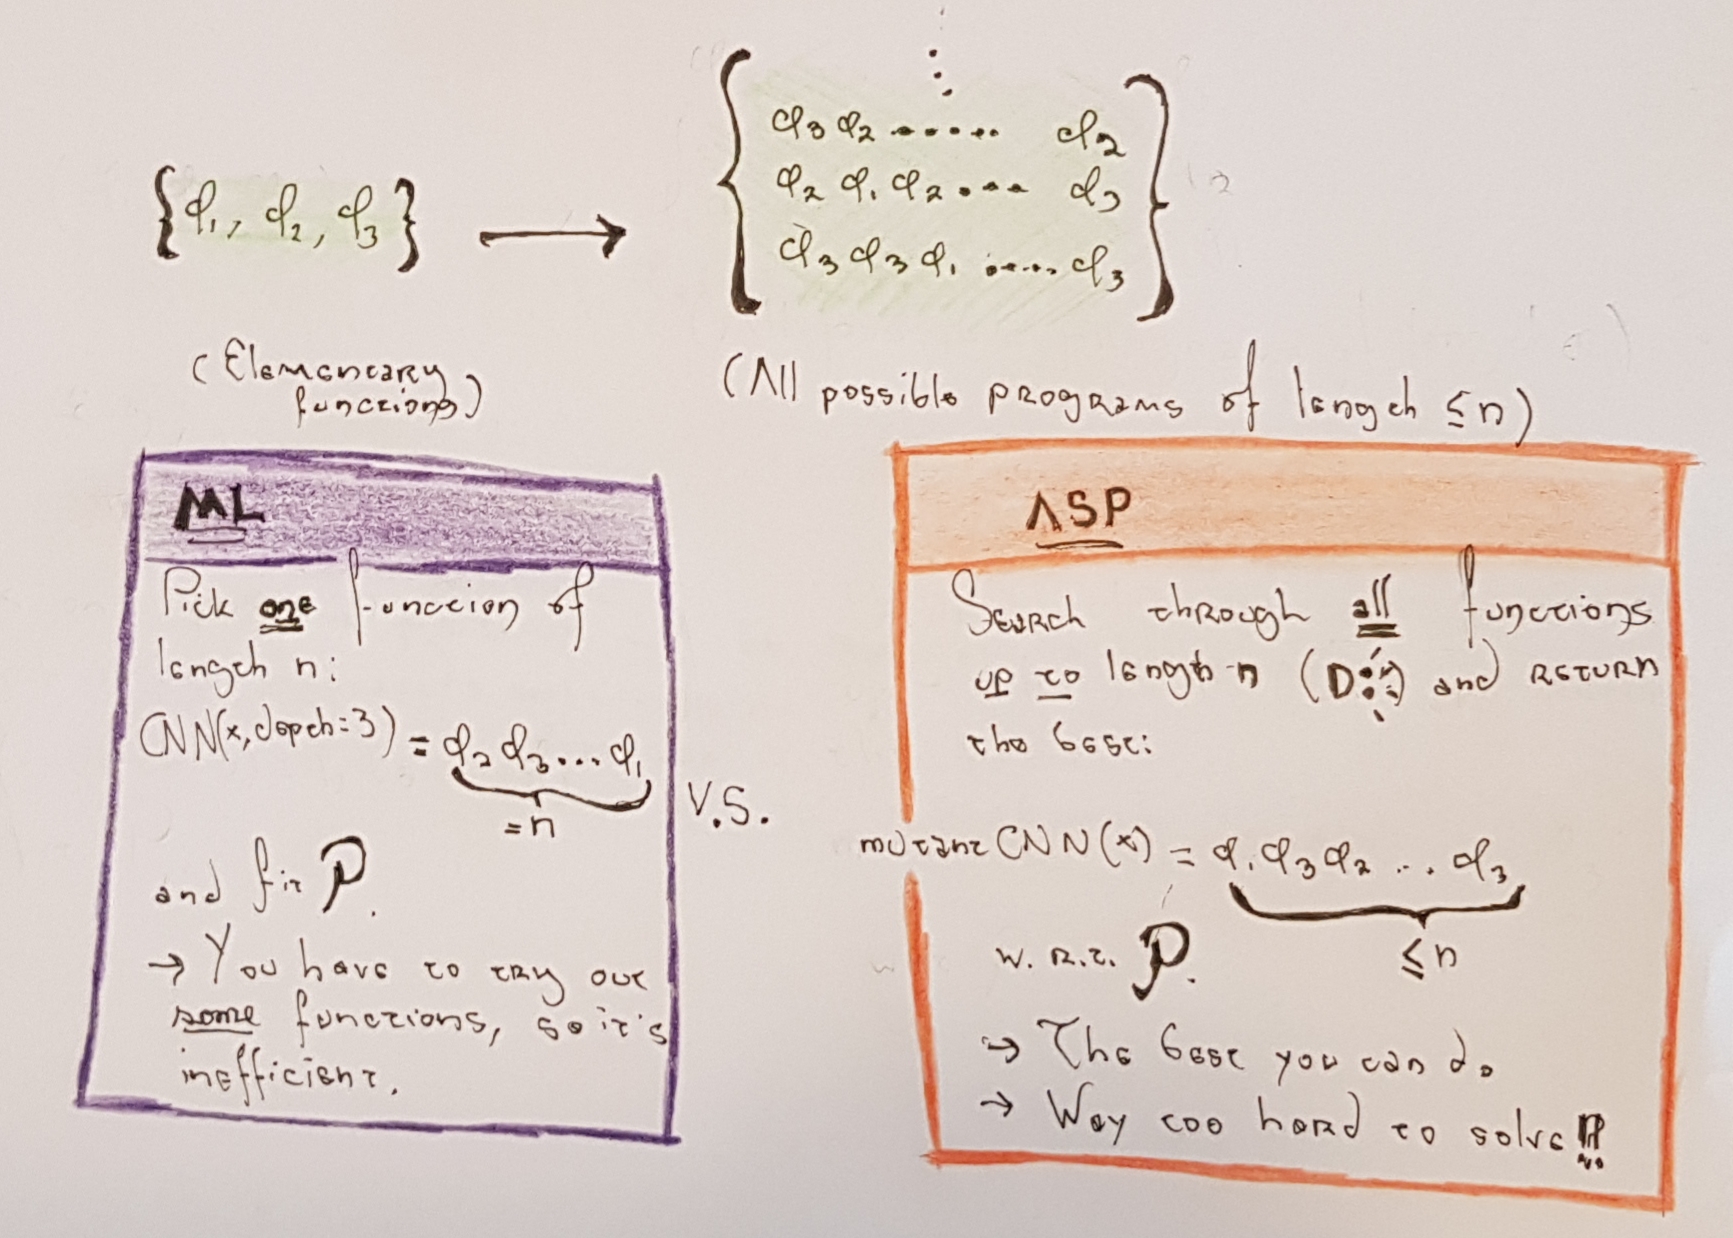 ⋮
φ3 φ2 ...... φ2
φ2 φ1 φ2 .... φ3
φ3 φ3 φ1 ..... φ3
{φ1, φ2, φ3} →
(Elementary
functions)
(All possible programs of length ≤n)
ML
Pick one function of
length n:
CNN(x, depth=3) = φ2 φ3 ... φ1
=n
and fit P.
→ You have to try out
some functions, so it's
inefficient.
V.S.
ASP
Search through all functions
up to length n and return
the best:
mutant CNN(x) = φ1 φ3 φ2 ... φ3
≤n
w.r.t. P.
→ The best you can do
→ Way too hard to solve!!